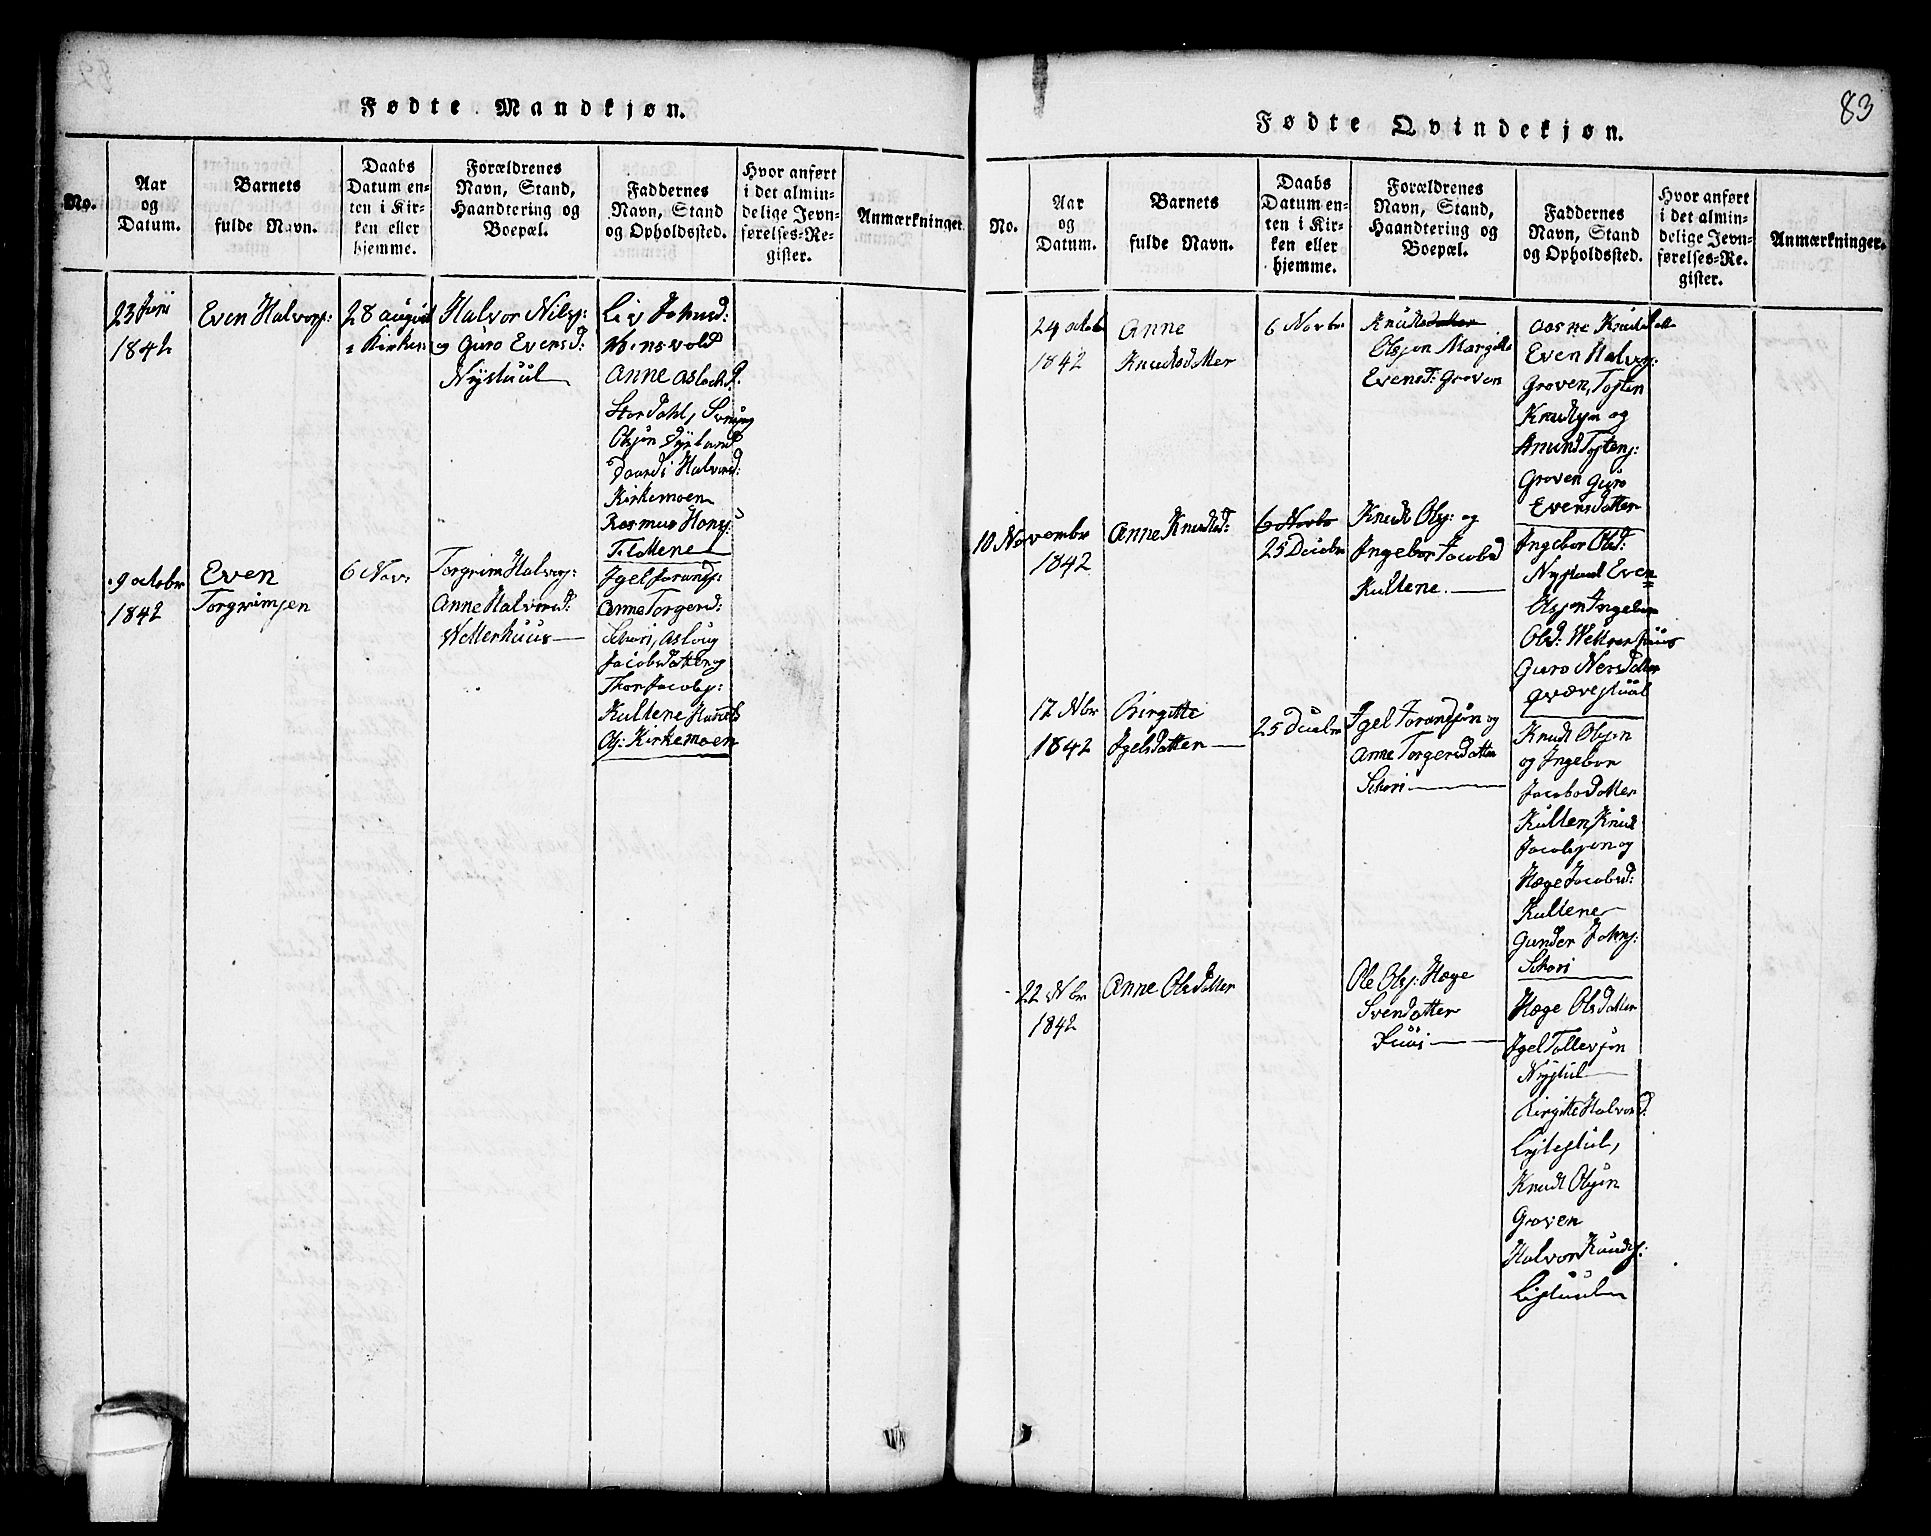 Fødte Mandkjøn.
No.
Aar
og
Datum.
Barnets
fulde Navn.
Daabs
Datum en-
ten i Kir-
ken eller
hjemme.
Forældrenes
Navn, Stand,
Haandtering og
Boepæl.
Faddernes
Navn, Stand
og Opholdssted.
Hvor anført
i det almin-
delige Jevn-
førelses-Re-
gister.
Anmærkninger.
23 Juni
1842
Even Halvors:
28 august
i Kirken
Halvor Nils:
og Guro Evensd:
Nystuul
Liv Johnsd:
Anne Aslachd:
Stordahl,
Olsøn Dyrland
Halvorsd:
Kirkemoen
Rasmus Hans:
9 octobr
1842
Even
Torgrimsen
6 Nov:
Torgrim Halvors:
Anne Halvorsd:
Wetterhuus
Igel Torands:
Anne Torgersd:
Schori, Aslaug
Jacobsdatter og
Thor Jacobs:
Kultene
Ols: Kirkemoen
83
Fødte Qvindekjøn.
No.
Aar
og
Datum.
Barnets
fulde Navn.
Daabs
Datum en-
ten i Kir-
ken eller
hjemme.
Forældrenes
Navn, Stand,
Haandtering og
Boepæl.
Faddernes
Navn, Stand
og Opholdssted.
Hvor anført
i det almin-
delige Jevn-
førelses-Re-
gister.
Anmærkninger.
24 octobr
1842
Anne
Knudsdatter
6 Novbr
Knudsdatter
Olsøn Margitte
Evensd: Groven
Aasne Knudsdatter
Even Halvors:
Groven, Tosten
Knudsen og
Anund Tostens:
Groven Guro
Evensdatter
10 Novembr
1842
Anne Knudsd:
6 Novbr
25 Decebr
Knudt Ols: og
Ingebor Jacobsd
Kultene.
Ingebor Olsd:
Nystuul Even
Olsøn Ingebor
Olsd: Wetterhuus
Guro Nersdatter
17 Nbr
1842
Birgitte
Igelsdatter
25 Decebr
Igel Torandsøn og
Anne Torgersdatter
Schori
Knudt Olsøn
og Ingebor
Jacobsdatter
Kulten, Knud
Jacobsen og
Hæge Jacobsd:
Kultene
Gunder Johns:
Schori
22 Nbr
1842
Anne Olsdatter
Ole Ols: Hæge
Svendatter
Hæge Olsdatter
Igel Tollevsøn
Nystul
Birgitte Halvorsd:
Knudt Olsøn
Groven
Halvor Knuds: